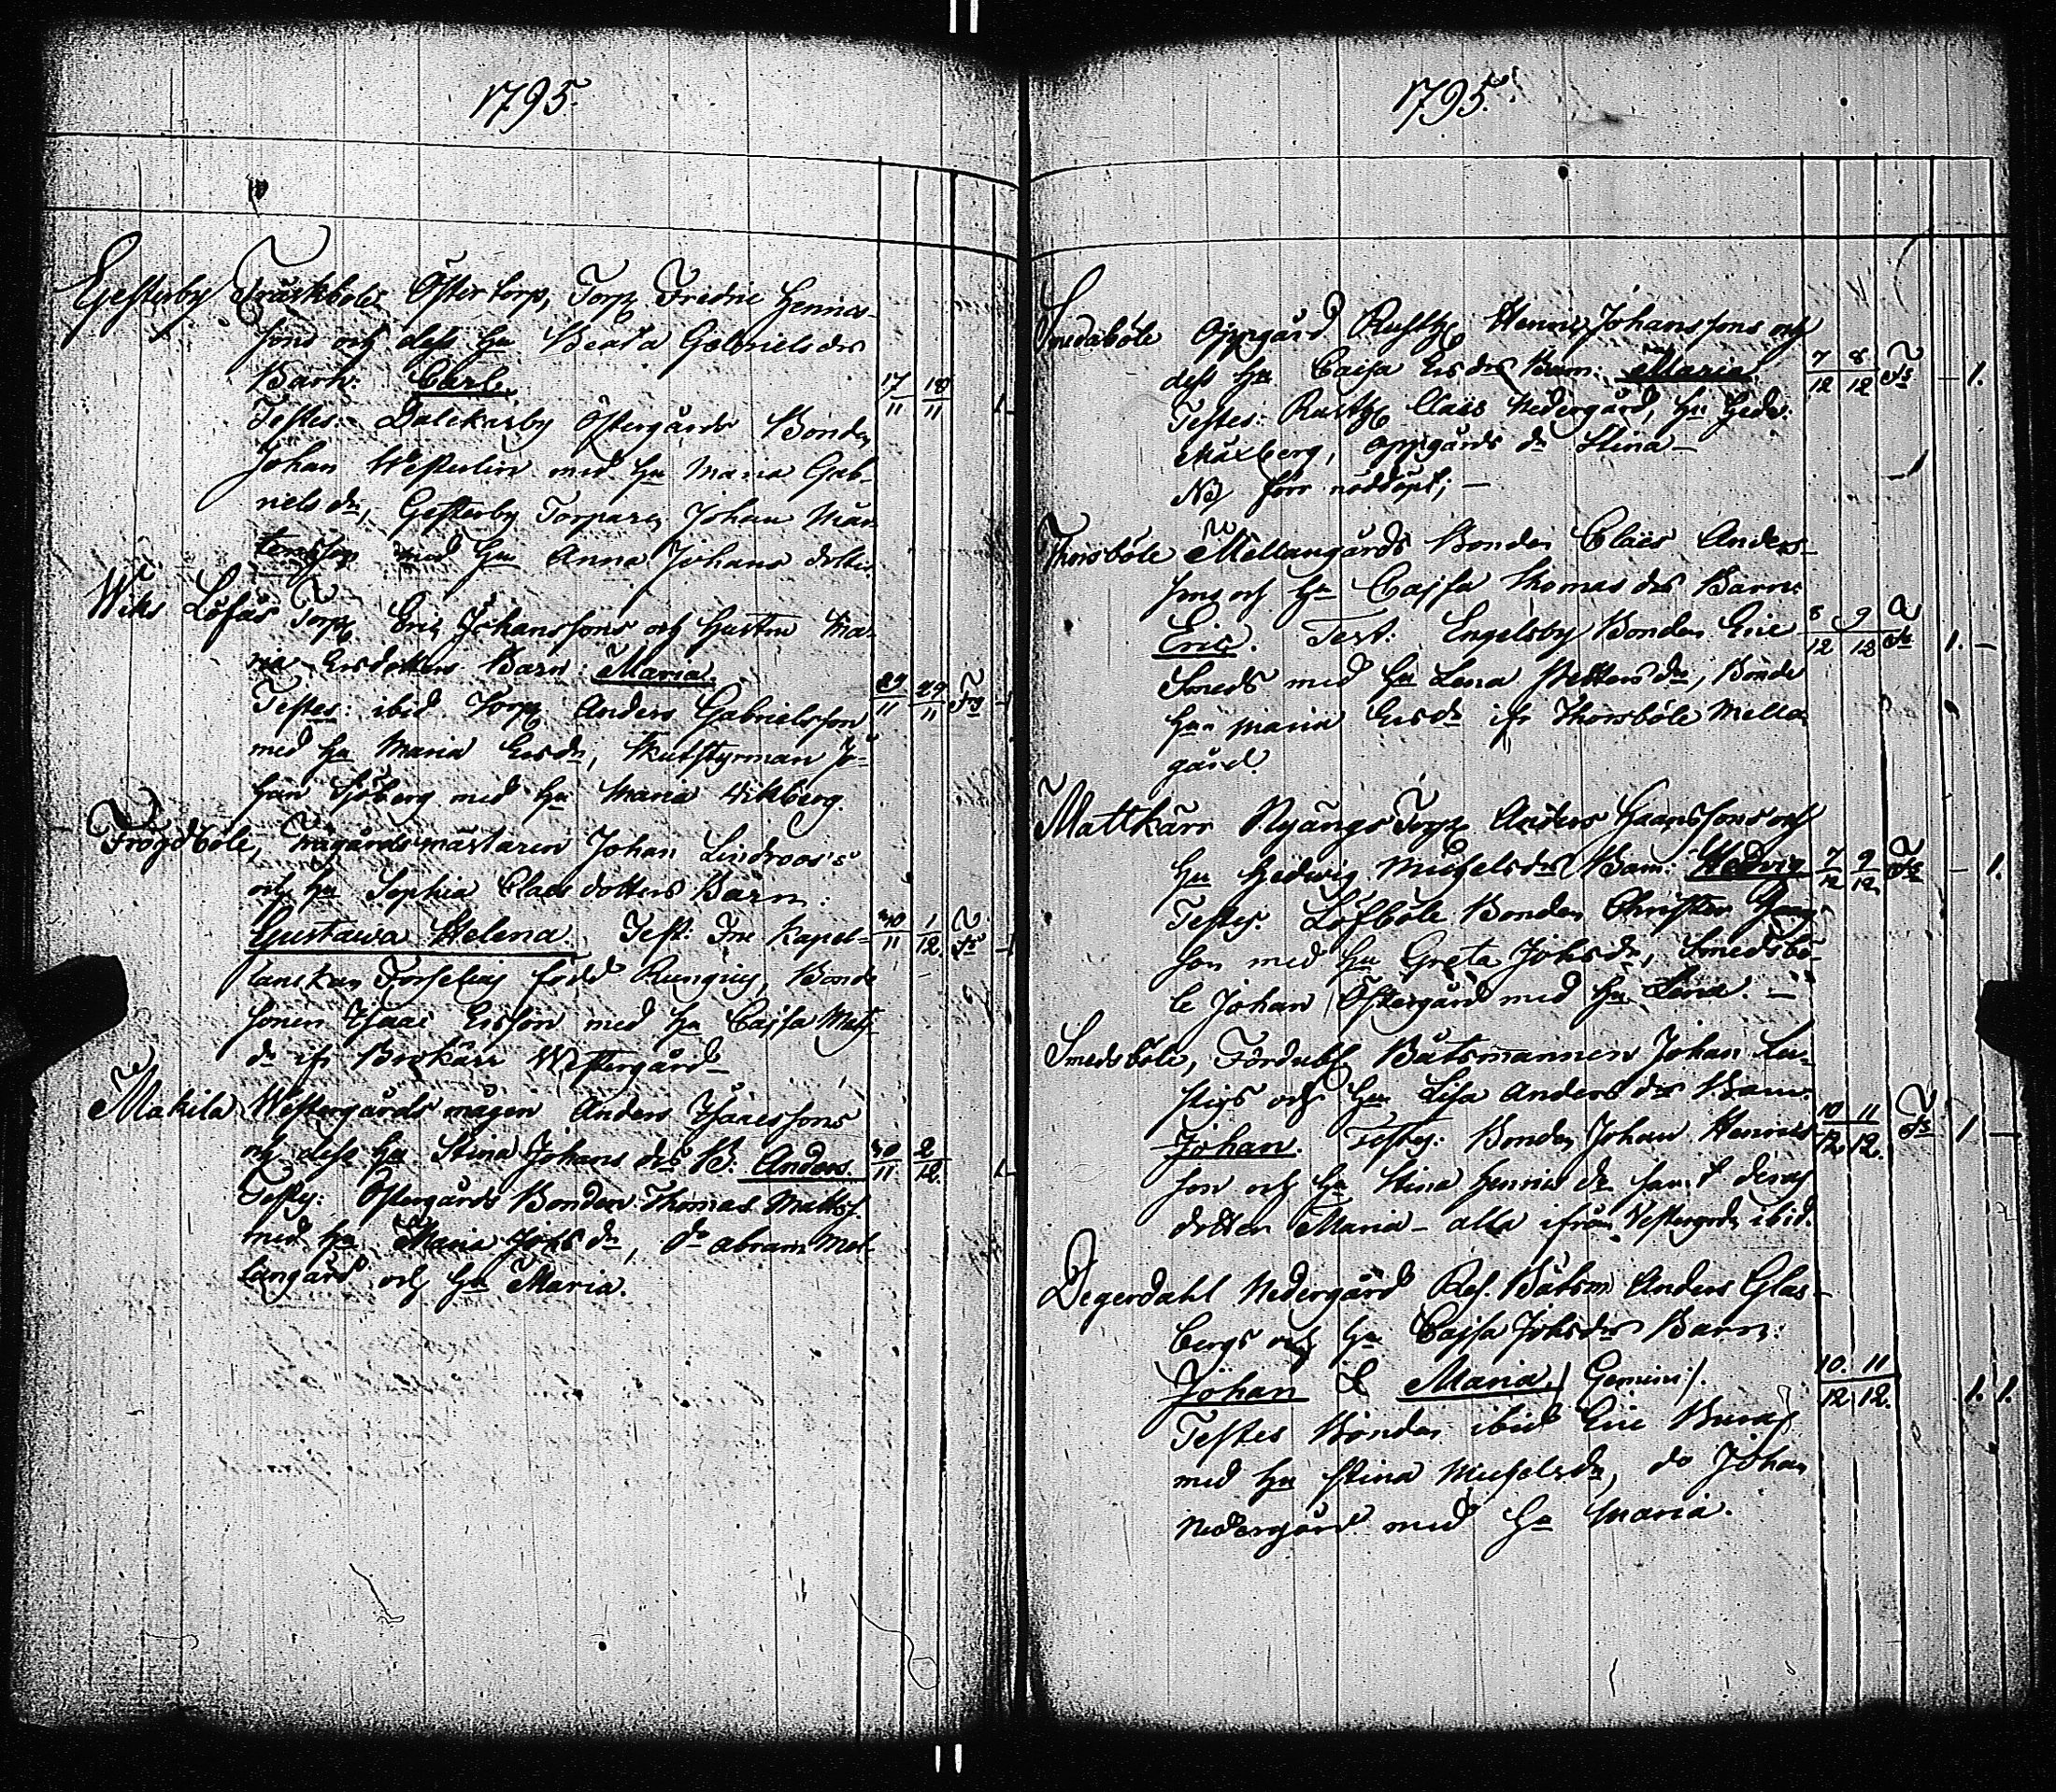 1795.
Gesterby Träskböle Östertorp, Torp. Fredric Henrics-
sons och dess Hu Beata Gabriels drs
Barn: Carl. 17/11 18/11 1
Testes: Dalckarby Östergårds Bonden
Johan Westerlin med Hu Maria Gab-
riels dr, Gesterby Torparen Johan Mår-
tensson med Hu Anna Johans dotter.
Wiks Löfås Torp. Eric Johanssons och Hustru Ma-
ria Ersdotters Barn: Maria. 29/11 29/11
Testes: ibid Torp. Anders Gabrielsson
med Hu Maria Ersdr, Skutstyrman Jo-
han Sjöberg med Hu Maria Wikberg.
Frögdböle, Trägårdsmästaren Johan Lindroos's
och Hu Sophia Claes dotters Barn:
Gustawa Helena. Test: Fru Kapel- 30/11 1/12
lanskan Forselius född Rungius, Bonde
sonen Isaac Ersson med Hu Cajsa Mats
dr ifr Westergård
Makila Westergårds mågen Anders Isacssons
och dess Hu Stina Johans drs B. Anders. 30/11 2/12 1
Testes: Östergårds Bonden Thomas Mattss.
med Hu Maria Johs dr, do Abram Mel-
langård och Hu Maria.
1795.
Smedsböle Oppgård Rusth. Henric Johanssons och
dess Hu Cajsa Ersdrs Barn: Maria. 7/12 8/12 – 1.
Testes: Rusth. Claës Nedergård, Hu Hedv.
Maxberg, Oppgårds dr Stina –
NB förr nöddöpt; –
Thorsböle Mellangårds Bonden Claës Anders-
sons och Hu Cajsa Thomas drs Barn
Eric. Test: Engelsby Bonden Eric 8/12 9/12 1. –
Smeds med Hu Lena Petters dr, Bonde
Hu Maria Ersdr ifr Thorsböle Mellan
gård.
Mattkärr Nyängs Torp. Anders Hanssons och
Hu Hedwig Michelsdrs Barn: Hedvig 7/12 9/12 – 1.
Testes: Löfböle Bonden Christer
son med Hu Greta Johsdr, Smedsbö-
le Johan Östergård med Hu Lena. –
Smedsböle, Båtsmannen Johan Lu-
stigs och Hu Lisa Anders drs Barn:
Johan. Testes: Bonden Johan Henrics 10/12 11/12 1 –
son och Hu Stina Henrics dr samt deras
dotter Maria – alla ifrån Vestergård ibid.
Degerdahl Nedergård Res. Båtsm. Anders Glas-
bergs och Hu Cajsa Johsdrs Barn:
Johan & Maria / Gemini /. 10/12 11/12 1. 1.
Testes Bonden ibid Eric
med Hu Stina Michelsdr, do Johan
Nedergård med Hu Maria.